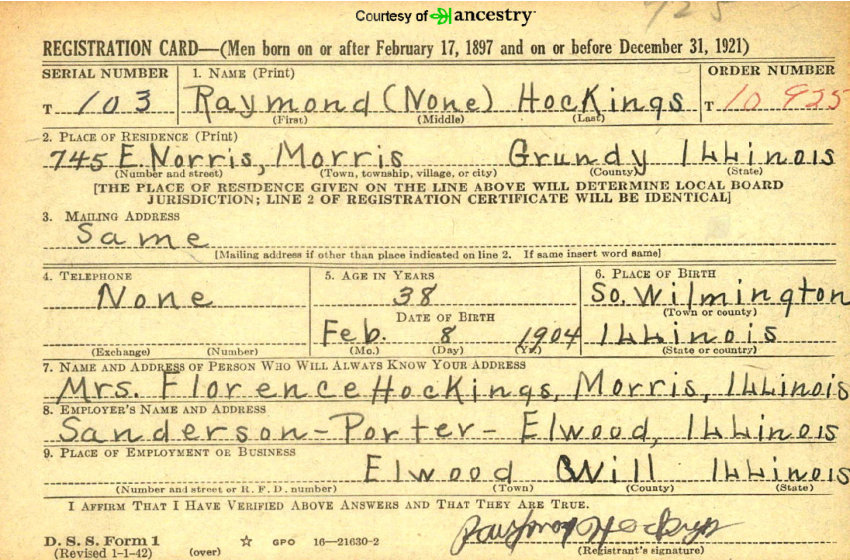 725
Courtesy of ancestry
REGISTRATION CARD—(Men born on or after February 17, 1897 and on or before December 31, 1921)
SERIAL NUMBER 1. NAME (Print) ORDER NUMBER
T 103 Raymond (None) Hockings T 10 925
(First) (Middle) (Last)
2. PLACE OF RESIDENCE (Print)
745 E. Norris, Morris Grundy Illinois
(Number and street) (Town, township, village, or city) (County) (State)
[THE PLACE OF RESIDENCE GIVEN ON THE LINE ABOVE WILL DETERMINE LOCAL BOARD
JURISDICTION; LINE 2 OF REGISTRATION CERTIFICATE WILL BE IDENTICAL]
3. MAILING ADDRESS
Same
[Mailing address if other than place indicated on line 2. If same insert word same]
4. TELEPHONE 5. AGE IN YEARS 6. PLACE OF BIRTH
None 38 So. Wilmington
DATE OF BIRTH (Town or county)
Feb. 8 1904 Illinois
(Exchange) (Number) (Mo.) (Day) (Yr.) (State or country)
7. NAME AND ADDRESS OF PERSON WHO WILL ALWAYS KNOW YOUR ADDRESS
Mrs. Florence Hockings, Morris, Illinois
8. EMPLOYER'S NAME AND ADDRESS
Sanderson-Porter- Elwood, Illinois
9. PLACE OF EMPLOYMENT OR BUSINESS
Elwood Will Illinois
(Number and street or R. F. D. number) (Town) (County) (State)
I AFFIRM THAT I HAVE VERIFIED ABOVE ANSWERS AND THAT THEY ARE TRUE.
Raymond Hockings
D. S. S. Form 1 ☆ GPO 16—21630-2 (Registrant's signature)
(Revised 1-1-42) (over)